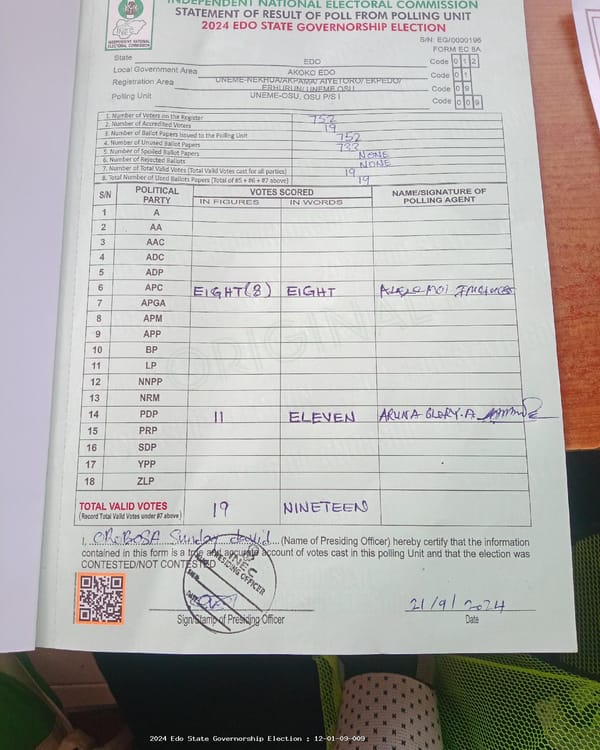 INDEPENDENT NATIONAL ELECTORAL COMMISSION
STATEMENT OF RESULT OF POLL FROM POLLING UNIT
2024 EDO STATE GOVERNORSHIP ELECTION
INEC
INDEPENDENT NATIONAL
ELECTORAL COMMISSION
S/N: EG/0000196
FORM EC 8A
State EDO Code 0 1 2
Local Government Area AKOKO EDO Code 0 1
Registration Area UNEME-NEKHUA/AKPAMA/AIYETORO/EKPEDO/ERHURUN/UNEME OSU Code 0 9
Polling Unit UNEME-OSU, OSU P/S I Code 0 0 9
1. Number of Voters on the Register 752
2. Number of Accredited Voters 19
3. Number of Ballot Papers Issued to the Polling Unit 752
4. Number of Unused Ballot Papers 733
5. Number of Spoiled Ballot Papers NONE
6. Number of Rejected Ballots NONE
7. Number of Total Valid Votes (Total Valid Votes cast for all parties) 19
8. Total Number of Used Ballots Papers (Total of #5 + #6 + #7 above) 19
S/N POLITICAL PARTY VOTES SCORED NAME/SIGNATURE OF POLLING AGENT
IN FIGURES IN WORDS
1 A
2 AA
3 AAC
4 ADC
5 ADP
6 APC EIGHT(8) EIGHT
7 APGA
8 APM
9 APP
10 BP
11 LP
12 NNPP
13 NRM
14 PDP 11 ELEVEN ARUNA GLORY.A
15 PRP
16 SDP
17 YPP
18 ZLP
ORIGINAL
TOTAL VALID VOTES 19 NINETEEN
(Record Total Valid Votes under #7 above)
I, Sunday david (Name of Presiding Officer) hereby certify that the information
contained in this form is a true and accurate account of votes cast in this polling Unit and that the election was
CONTESTED/NOT CONTESTED
INEC
PRESIDING OFFICER
21/9/2024
Sign/Stamp of Presiding Officer Date
2024 Edo State Governorship Election : 12-01-09-009